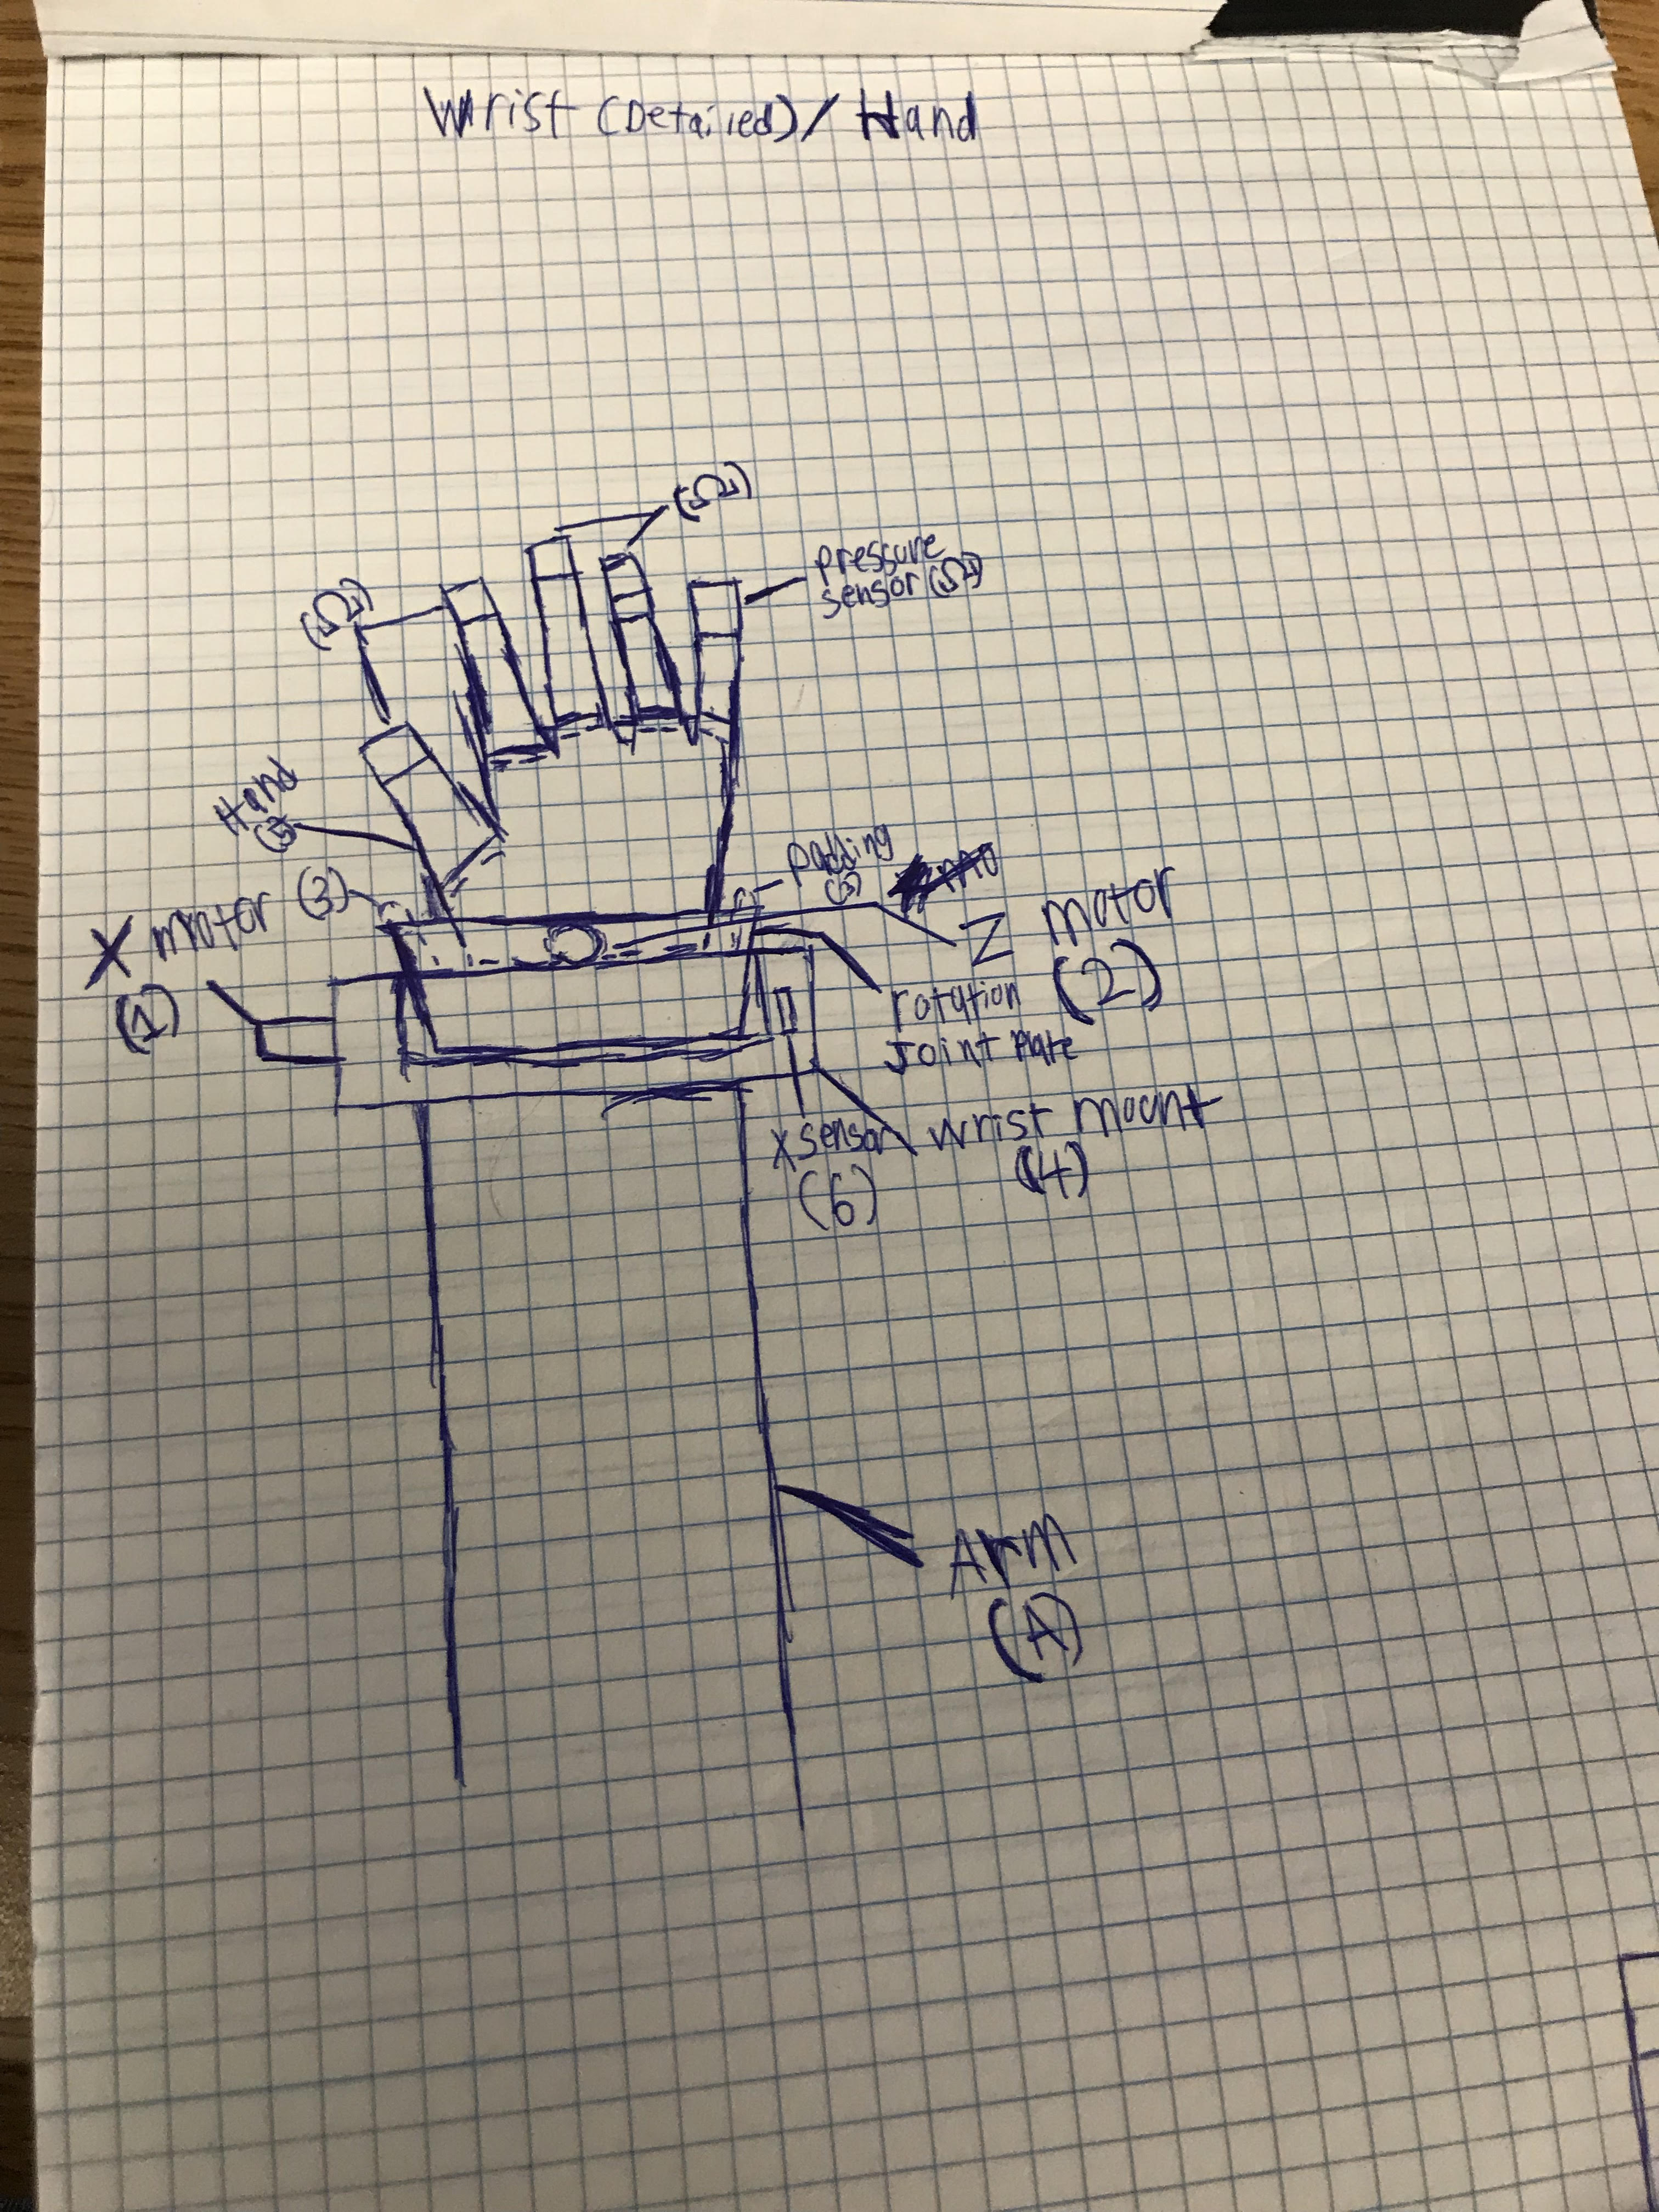 Wrist (Detailed) / Hand
(Ω)
pressure
sensor (Ω)
(Ω)
Hand
(5)
padding
(3)
X motor
(1)
(3)
Z motor
(2)
rotation
Joint Plate
X sensor
(6)
Wrist mount
(4)
Arm
(A)